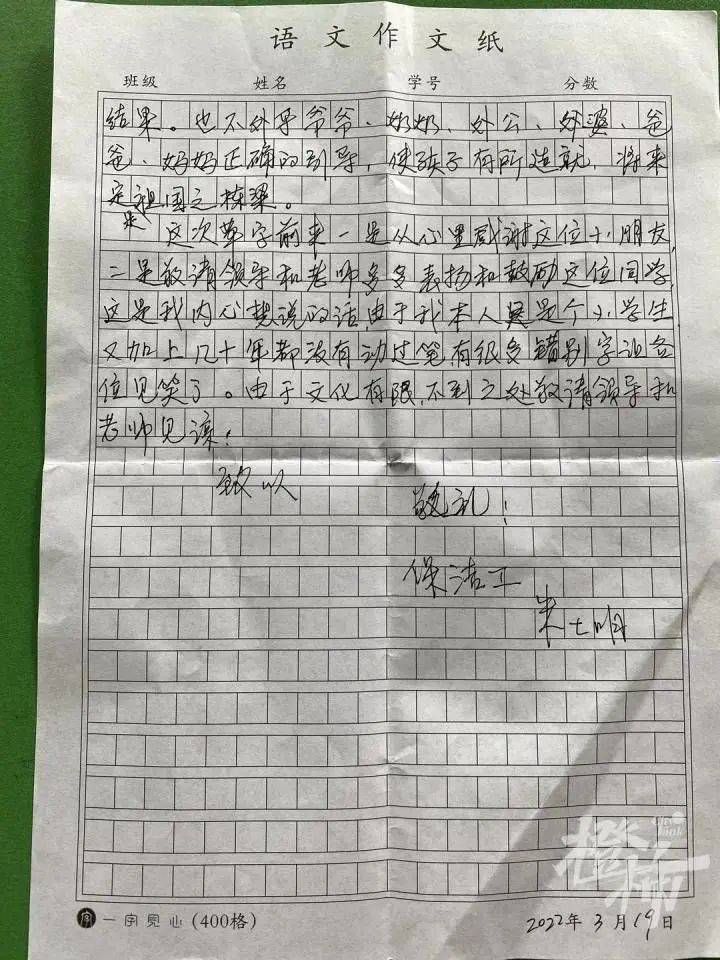 语文作文纸
班级 姓名 学号 分数
结果。也不外乎爷爷、奶奶、外公、外婆、爸
爸、妈妈正确的引导，使孩子有所造就，将来
定是祖国之栋梁。
这次草字前来一是从心里感谢这位小朋友，
二是敬请领导和老师多多表扬和鼓励这位同学，
这是我内心想说的话，由于我本人是个小学生
又加上几十年都没有动过笔有很多错别字让各
位见笑了。由于文化有限，不到之处敬请领导和
老师见谅！
致以 敬礼！
保洁工
朱士明
City Link
橙柿
一字见心(400格) 2022年3月19日